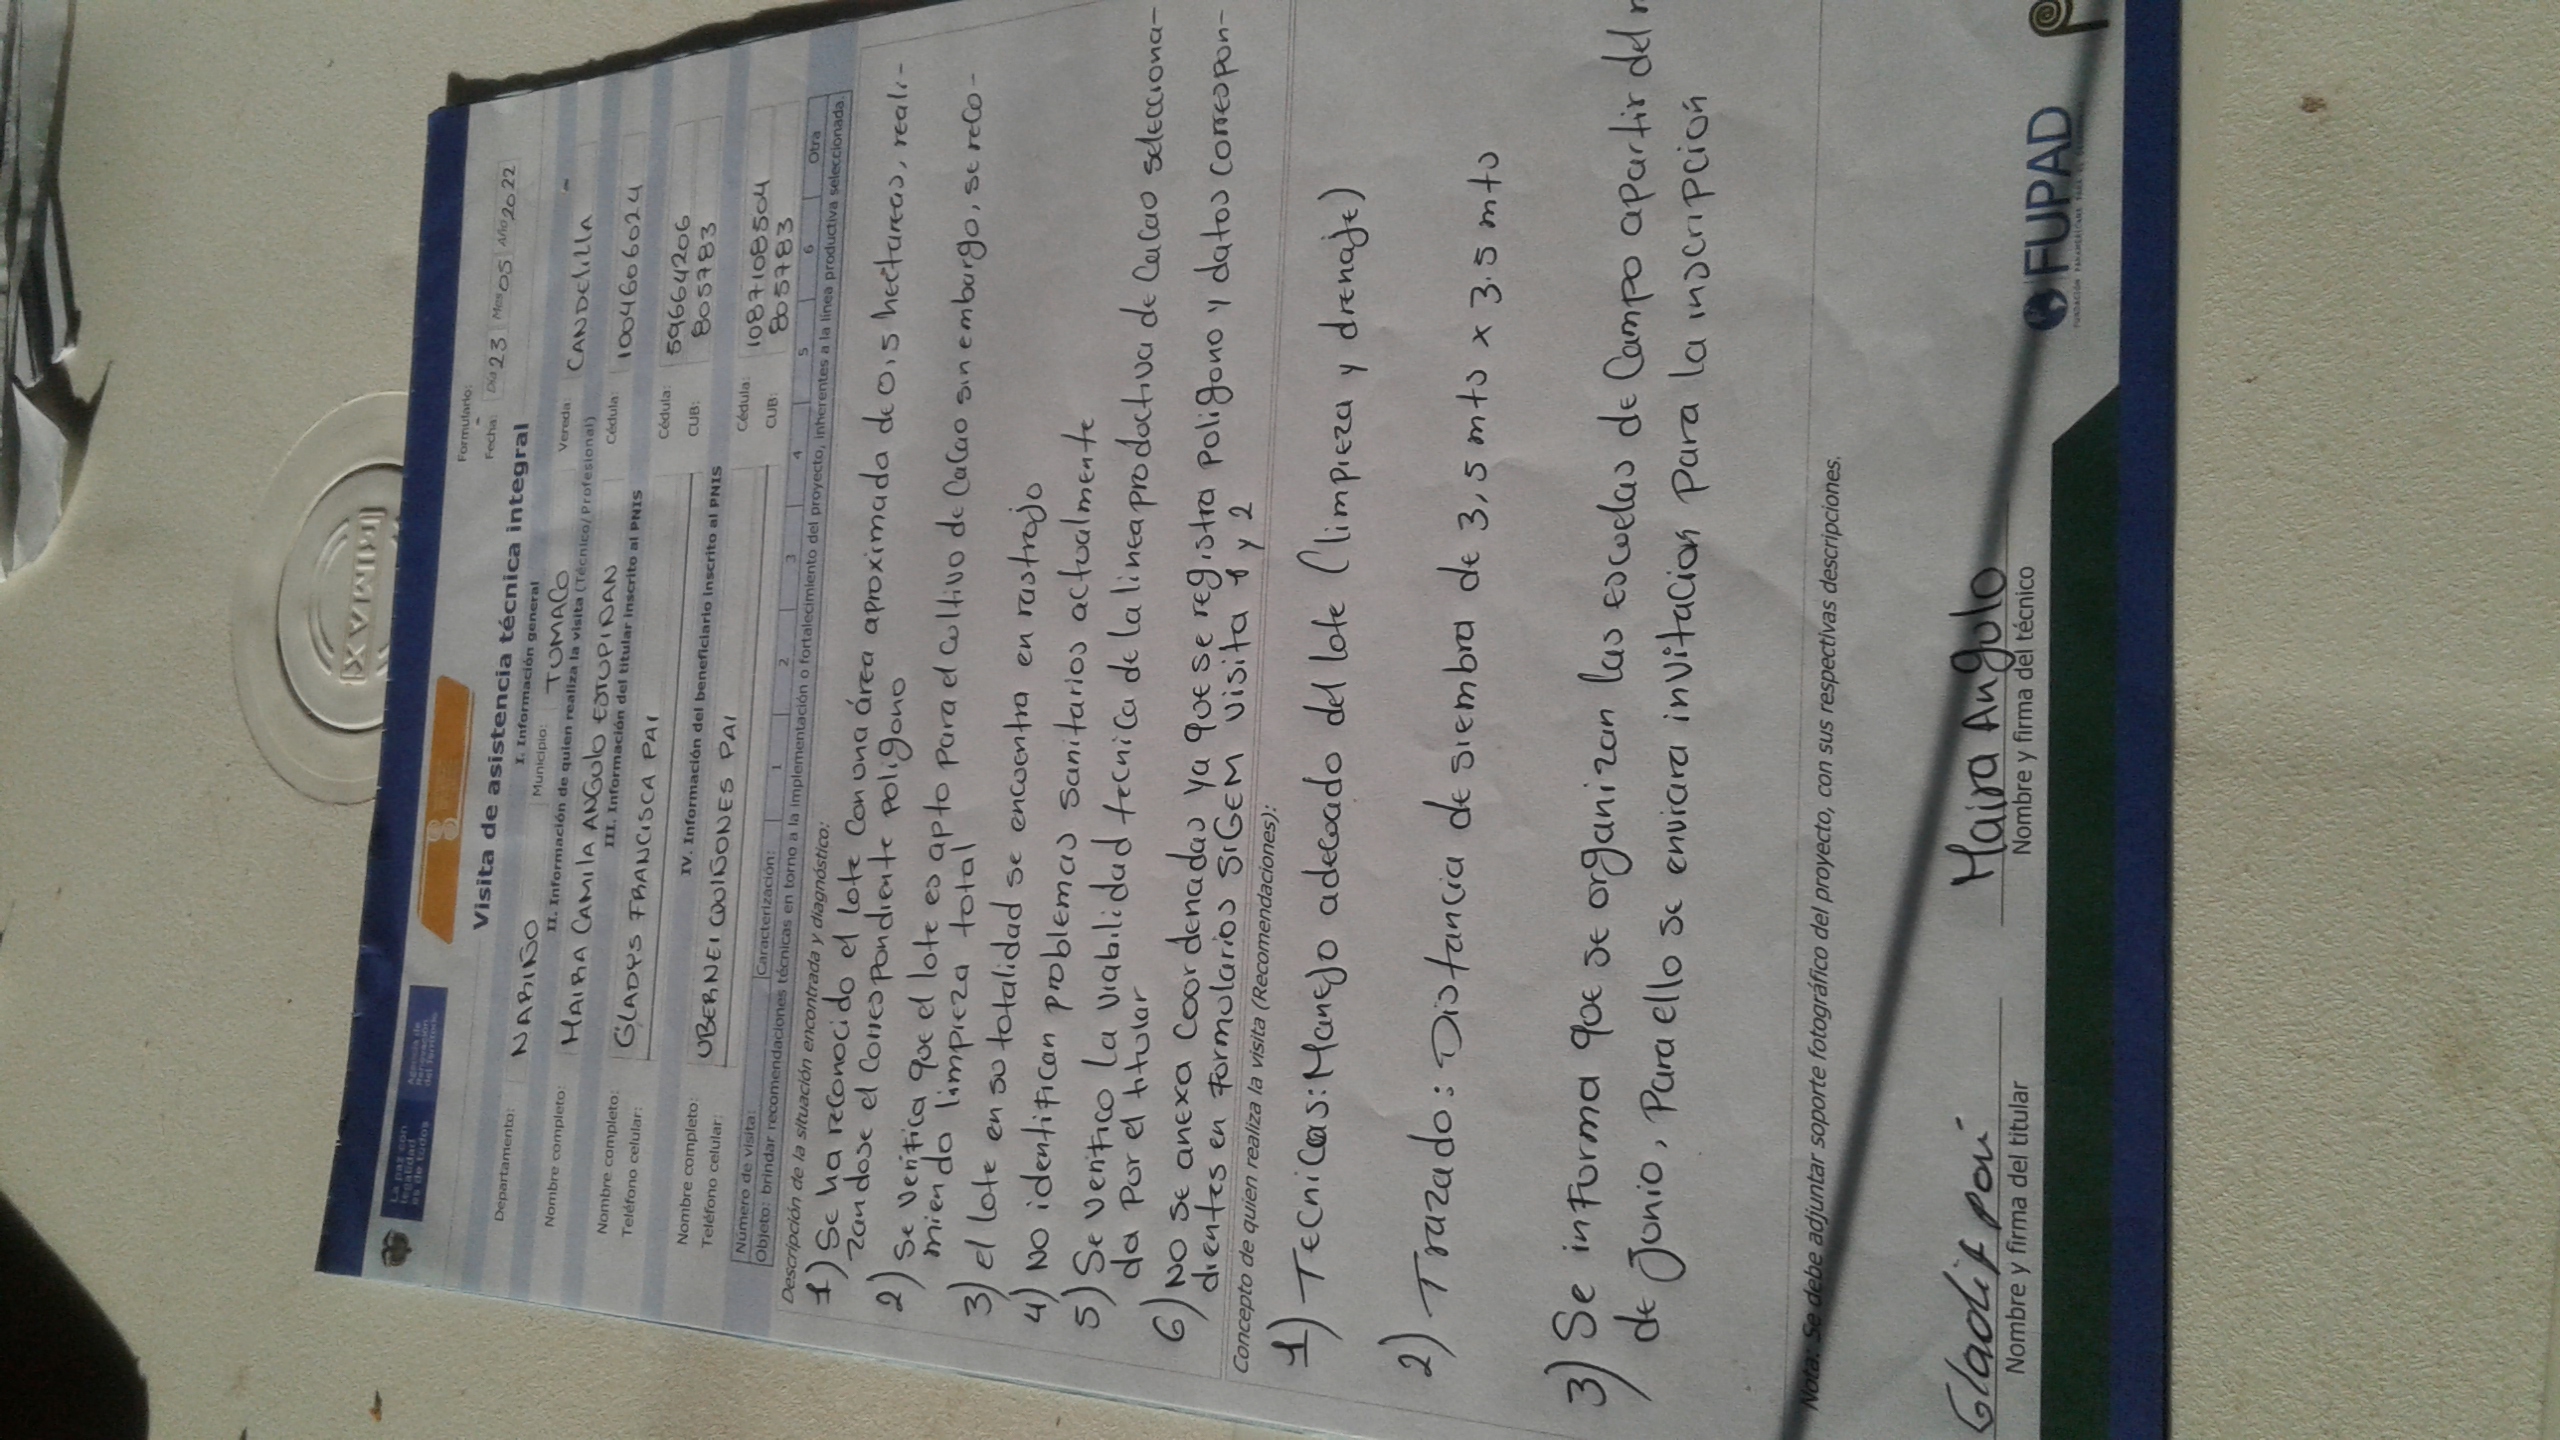 La paz con
legalidad
es de todos
Agencia de
Renovación
del Territorio
Formulario:
Visita de asistencia técnica integral
Fecha: Día 23 Mes 05 Año 2022
I. Información general
Departamento: NARIÑO Municipio: TUMACO Vereda: CANDELILLA
II. Información de quien realiza la visita (Técnico/Profesional)
Nombre completo: MAIRA CAMILA ANGULO ESTUPIÑAN Cédula: 1004606024
III. Información del titular inscrito al PNIS
Nombre completo: GLADYS FRANCISCA PAI Cédula: 59664206
Teléfono celular: CUB: 805783
IV. Información del beneficiario inscrito al PNIS
Nombre completo: UBERNEI QUIÑONES PAI Cédula: 1087108504
Teléfono celular: CUB: 805783
Número de visita: Caracterización: 1 2 3 4 5 6 Otra
Objeto: brindar recomendaciones técnicas en torno a la implementación o fortalecimiento del proyecto, inherentes a la línea productiva seleccionada.
Descripción de la situación encontrada y diagnóstico:
1) Se ha reconocido el lote con una área aproximada de 0,5 hectareas, reali-
zandose el correspondiente poligono
2) Se verifica que el lote es apto para el cultivo de cacao sin embargo, se reco-
miendo limpieza total
3) el lote en su totalidad se encuentra en rastrojo
4) NO identifican problemas sanitarios actualmente
5) Se verifico la viabilidad tecnica de la linea productiva de cacao selecciona-
da por el titular
6) NO se anexa coordenadas ya que se registra poligono y datos correspon-
dientes en formularios SIGEM visita 1 y 2
Concepto de quien realiza la visita (Recomendaciones):
1) Tecnicas: Manejo adecuado del lote (limpieza y drenaje)
2) Trazado: Distancia de siembra de 3,5 mts x 3.5 mts
3) Se informa que se organizan las escuelas de campo apartir del
de junio, Para ello se enviara invitacion para la inscripción
Nota: Se debe adjuntar soporte fotográfico del proyecto, con sus respectivas descripciones.
Gladis pai
Maira Angulo
Nombre y firma del titular
Nombre y firma del técnico
FUPAD
IMAX